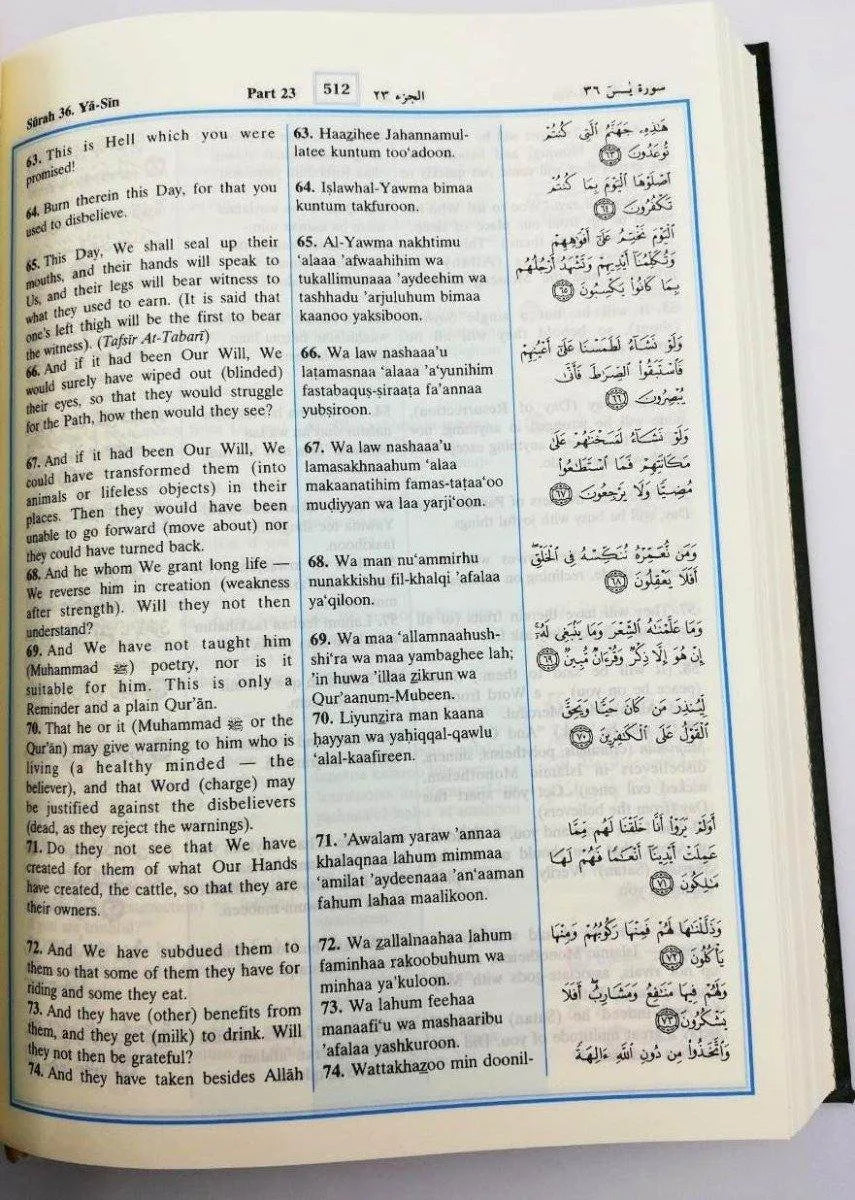 Sûrah 36. Yâ-Sîn
Part 23
512
الجزء ٢٣
سورة يٰسٓ ٣٦
63. This is Hell which you were
promised!
64. Burn therein this Day, for that you
used to disbelieve.
65. This Day, We shall seal up their
mouths, and their hands will speak to
Us, and their legs will bear witness to
what they used to earn. (It is said that
one's left thigh will be the first to bear
the witness). (Tafsîr At-Tabarî)
66. And if it had been Our Will, We
would surely have wiped out (blinded)
their eyes, so that they would struggle
for the Path, how then would they see?
67. And if it had been Our Will, We
could have transformed them (into
animals or lifeless objects) in their
places. Then they would have been
unable to go forward (move about) nor
they could have turned back.
68. And he whom We grant long life —
We reverse him in creation (weakness
after strength). Will they not then
understand?
69. And We have not taught him
(Muhammad ﷺ) poetry, nor is it
suitable for him. This is only a
Reminder and a plain Qur'ân.
70. That he or it (Muhammad ﷺ or the
Qur'ân) may give warning to him who is
living (a healthy minded — the
believer), and that Word (charge) may
be justified against the disbelievers
(dead, as they reject the warnings).
71. Do they not see that We have
created for them of what Our Hands
have created, the cattle, so that they are
their owners.
72. And We have subdued them to
them so that some of them they have for
riding and some they eat.
73. And they have (other) benefits from
them, and they get (milk) to drink. Will
they not then be grateful?
74. And they have taken besides Allâh
63. Haazihee Jahannamul-
latee kuntum too'adoon.
64. Iṣlawhal-Yawma bimaa
kuntum takfuroon.
65. Al-Yawma nakhtimu
'alaaa 'afwaahihim wa
tukallimunaaa 'aydeehim wa
tashhadu 'arjuluhum bimaa
kaanoo yaksiboon.
66. Wa law nashaaa'u
laṭamasnaa 'alaaa 'a'yunihim
fastabaquṣ-ṣiraaṭa fa'annaa
yubṣiroon.
67. Wa law nashaaa'u
lamasakhnaahum 'alaa
makaanatihim famas-taṭaa'oo
muḍiyyan wa laa yarji'oon.
68. Wa man nu'ammirhu
nunakkishu fil-khalqi 'afalaa
ya'qiloon.
69. Wa maa 'allamnaahush-
shi'ra wa maa yambaghee lah;
'in huwa 'illaa zikrun wa
Qur'aanum-Mubeen.
70. Liyunzira man kaana
ḥayyan wa yaḥiqqal-qawlu
'alal-kaafireen.
71. 'Awalam yaraw 'annaa
khalaqnaa lahum mimmaa
'amilat 'aydeenaaa 'an'aaman
fahum lahaa maalikoon.
72. Wa zallalnaahaa lahum
faminhaa rakoobuhum wa
minhaa ya'kuloon.
73. Wa lahum feehaa
manaafi'u wa mashaaribu
'afalaa yashkuroon.
74. Wattakhazoo min doonil-
هَٰذِهِۦ جَهَنَّمُ ٱلَّتِى كُنتُمْ
تُوعَدُونَ ٦٣
ٱصْلَوْهَا ٱلْيَوْمَ بِمَا كُنتُمْ
تَكْفُرُونَ ٦٤
ٱلْيَوْمَ نَخْتِمُ عَلَىٰٓ أَفْوَٰهِهِمْ
وَتُكَلِّمُنَآ أَيْدِيهِمْ وَتَشْهَدُ أَرْجُلُهُم
بِمَا كَانُوا۟ يَكْسِبُونَ ٦٥
وَلَوْ نَشَآءُ لَطَمَسْنَا عَلَىٰٓ أَعْيُنِهِمْ
فَٱسْتَبَقُوا۟ ٱلصِّرَٰطَ فَأَنَّىٰ
يُبْصِرُونَ ٦٦
وَلَوْ نَشَآءُ لَمَسَخْنَٰهُمْ عَلَىٰ
مَكَانَتِهِمْ فَمَا ٱسْتَطَٰعُوا۟
مُضِيًّا وَلَا يَرْجِعُونَ ٦٧
وَمَن نُّعَمِّرْهُ نُنَكِّسْهُ فِى ٱلْخَلْقِ
أَفَلَا يَعْقِلُونَ ٦٨
وَمَا عَلَّمْنَٰهُ ٱلشِّعْرَ وَمَا يَنۢبَغِى لَهُۥٓ
إِنْ هُوَ إِلَّا ذِكْرٌ وَقُرْءَانٌ مُّبِينٌ ٦٩
لِّيُنذِرَ مَن كَانَ حَيًّا وَيَحِقَّ
ٱلْقَوْلُ عَلَى ٱلْكَٰفِرِينَ ٧٠
أَوَلَمْ يَرَوْا۟ أَنَّا خَلَقْنَا لَهُم مِّمَّا
عَمِلَتْ أَيْدِينَآ أَنْعَٰمًا فَهُمْ لَهَا
مَٰلِكُونَ ٧١
وَذَلَّلْنَٰهَا لَهُمْ فَمِنْهَا رَكُوبُهُمْ وَمِنْهَا
يَأْكُلُونَ ٧٢
وَلَهُمْ فِيهَا مَنَٰفِعُ وَمَشَارِبُ أَفَلَا
يَشْكُرُونَ ٧٣
وَٱتَّخَذُوا۟ مِن دُونِ ٱللَّهِ ءَالِهَةً